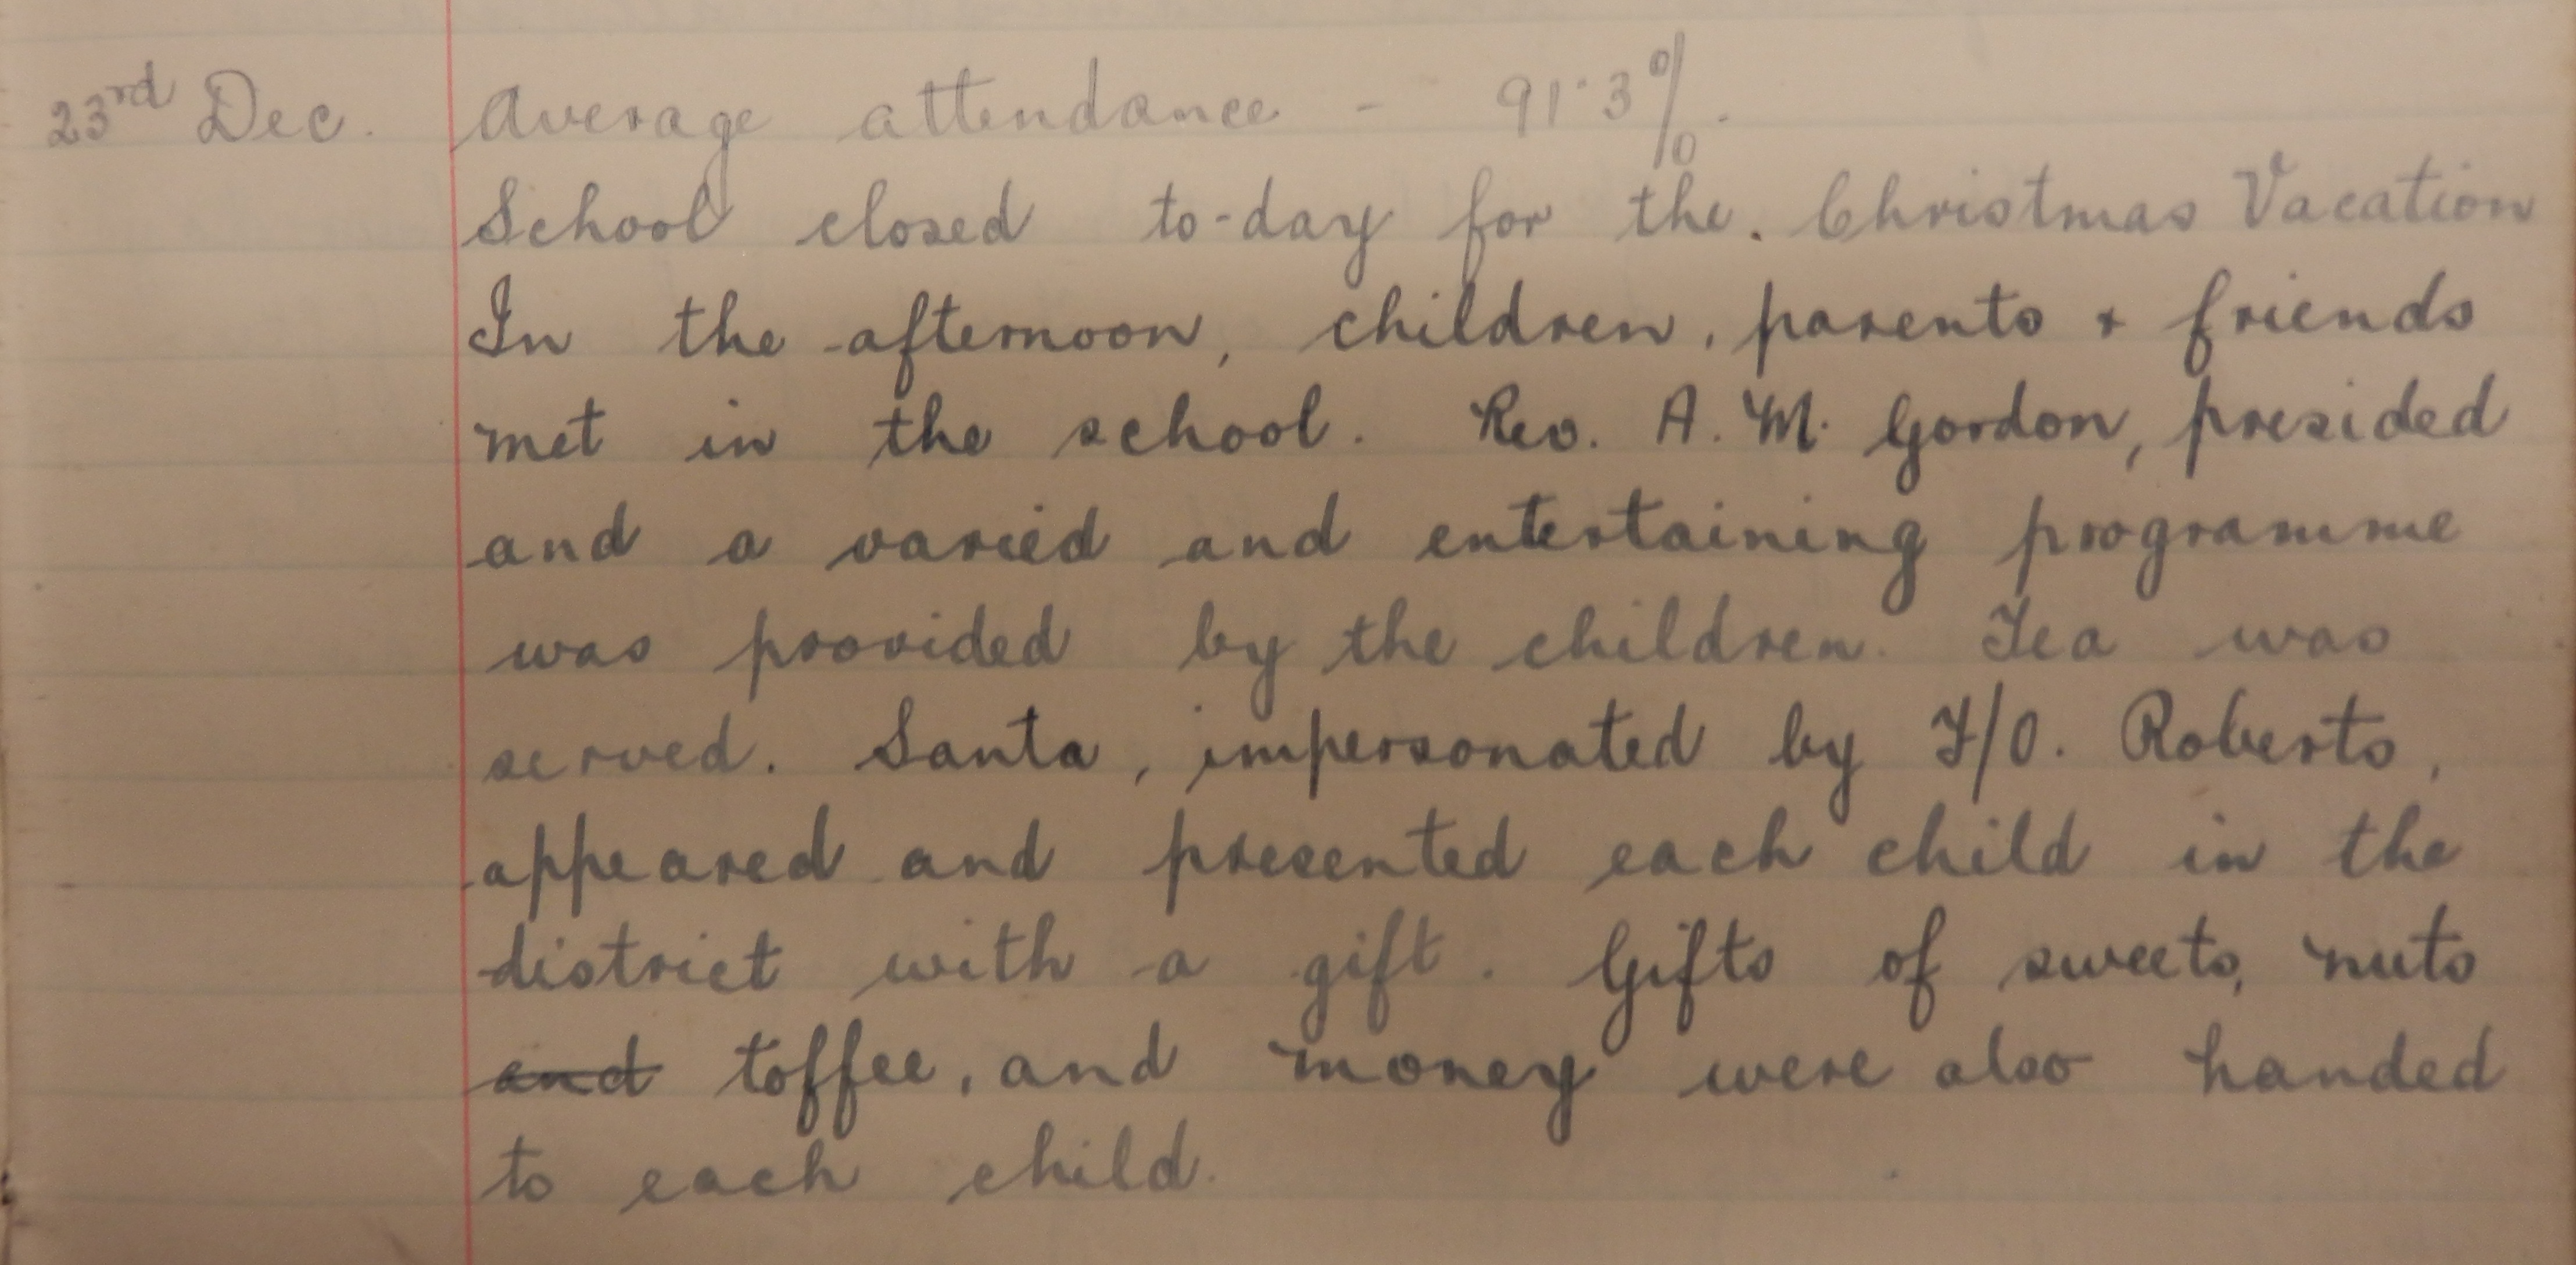 23rd Dec. Average attendance - 91·3%.
School closed to-day for the. Christmas Vacation
In the afternoon, children, parents + friends
met in the school. Rev. A. M. Gordon, presided
and a varied and entertaining programme
was provided by the children. Tea was
served. Santa, impersonated by F/O. Roberts,
appeared and presented each child in the
district with a gift. Gifts of sweets, nuts
and toffee, and money were also handed
to each child.